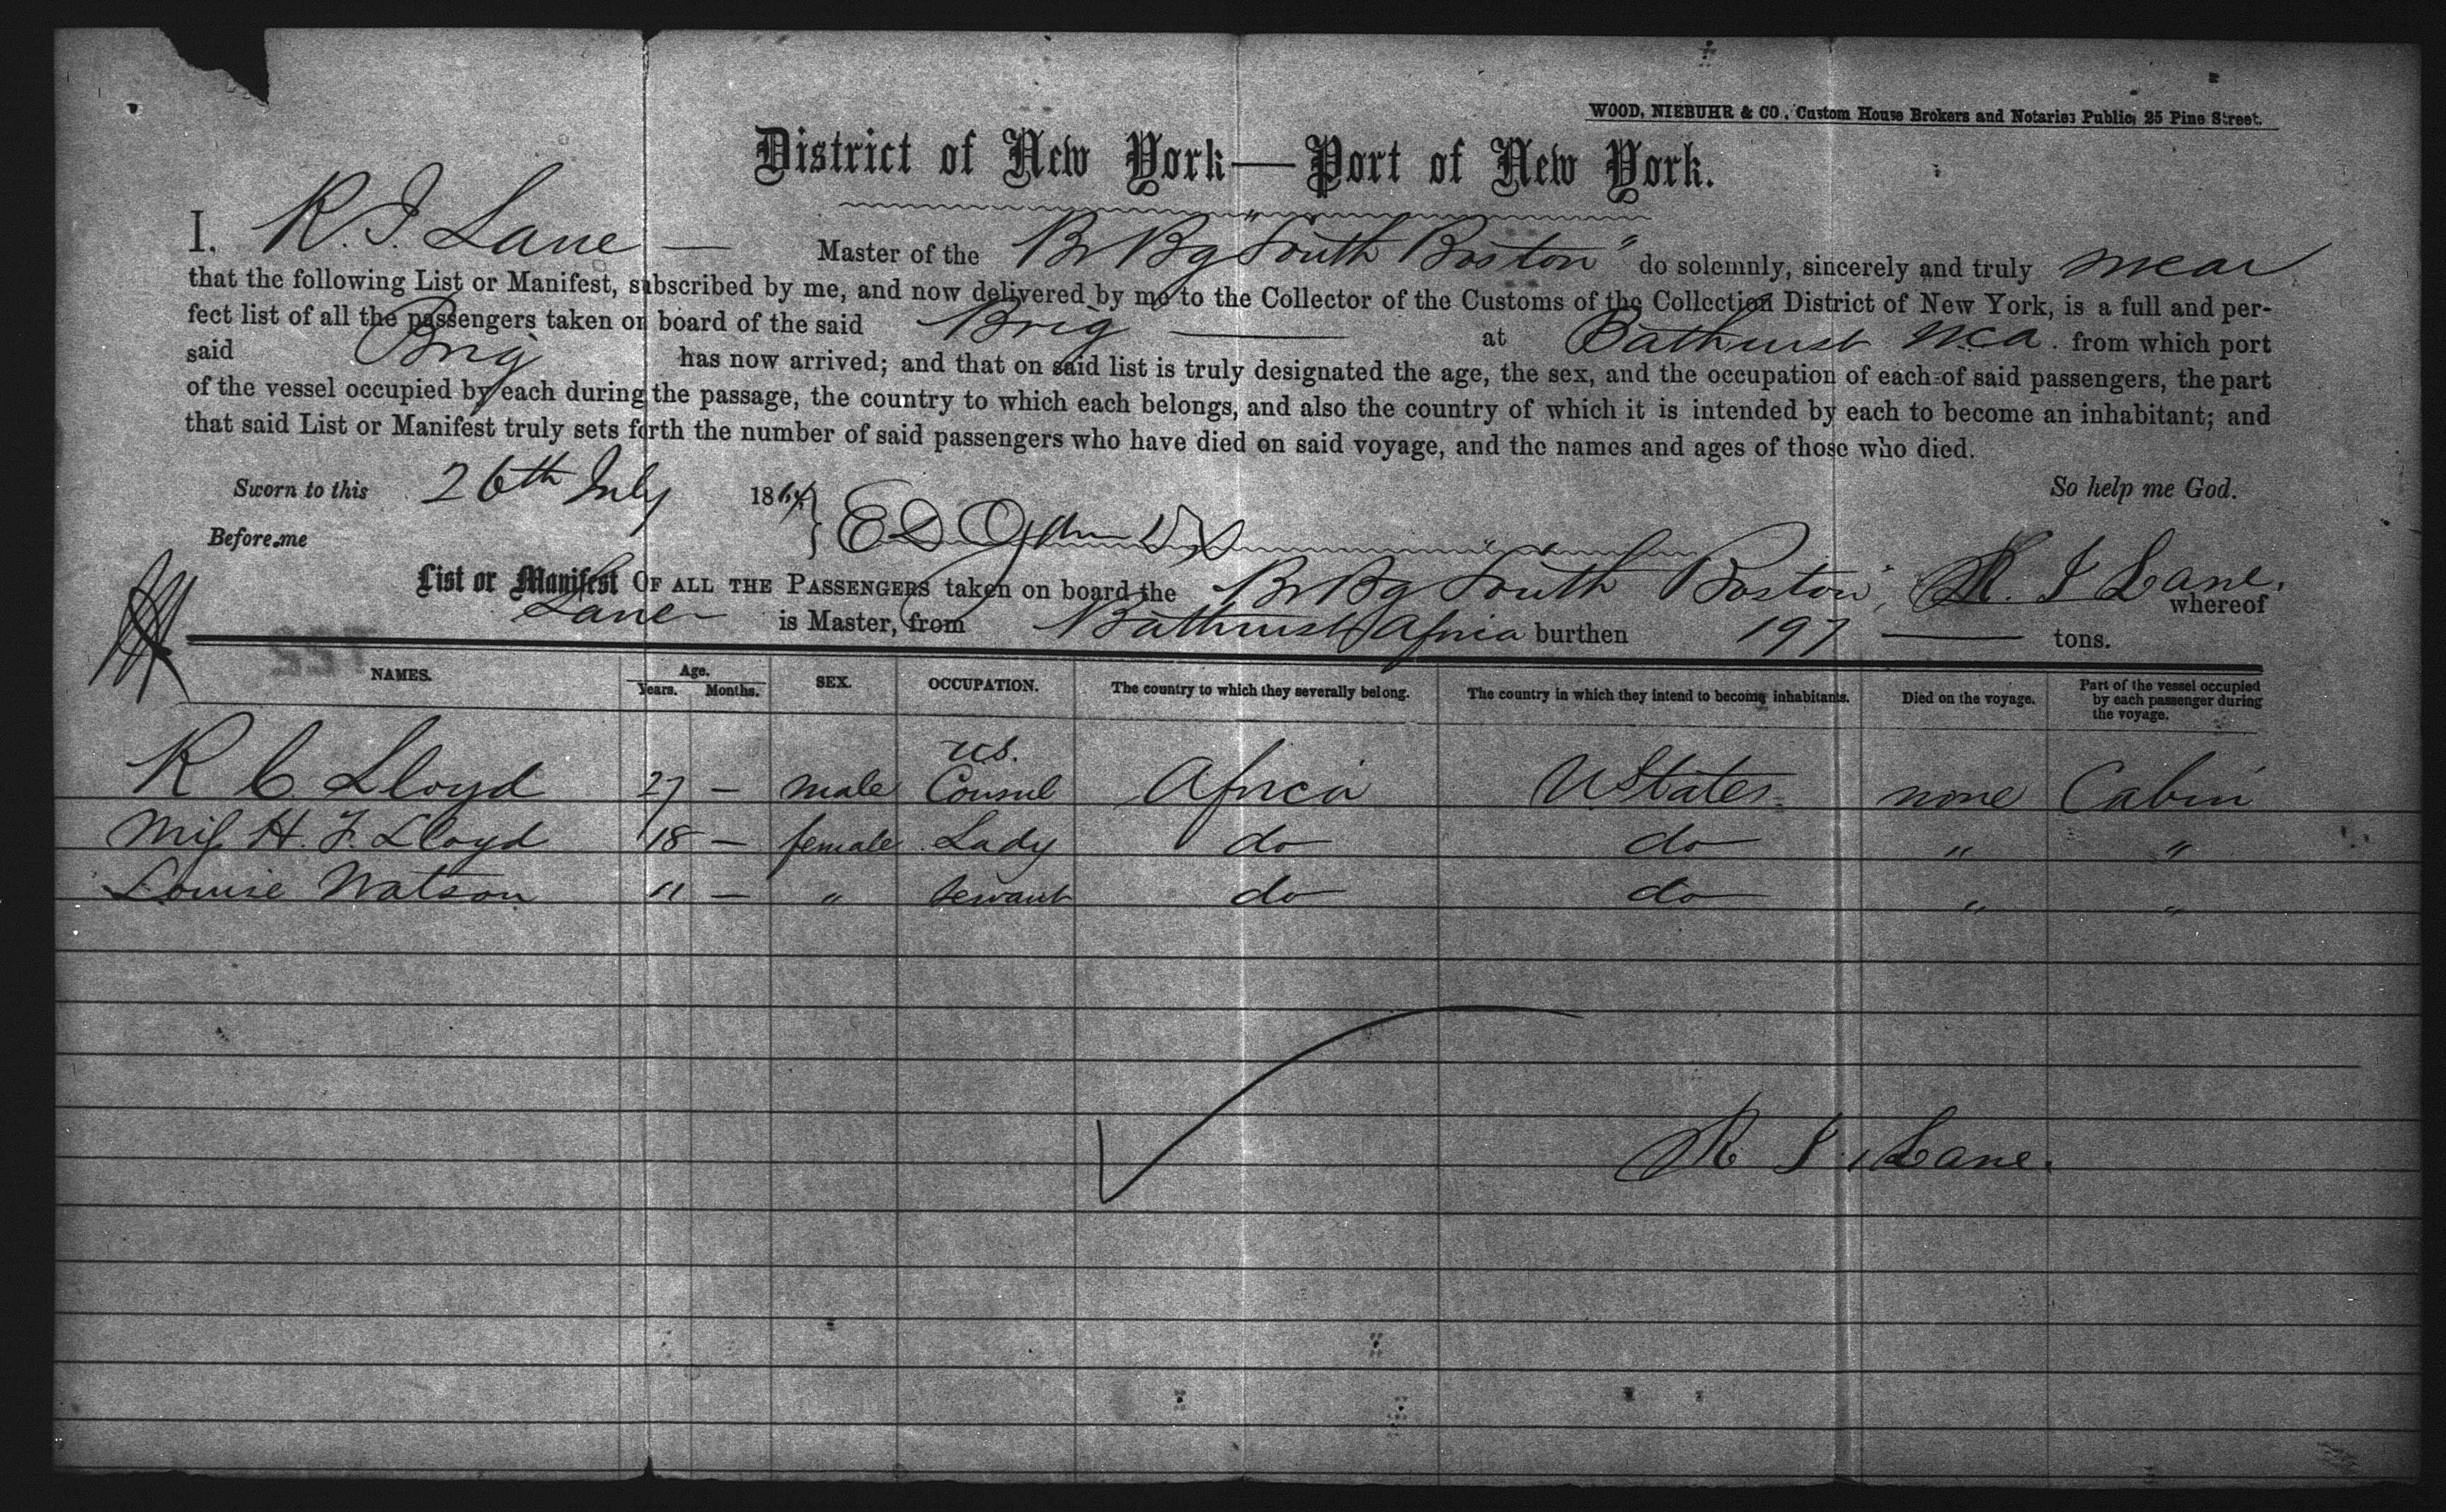 WOOD, NIEBUHR & CO., Custom House Brokers and Notaries Public, 25 Pine Street.
District of New York—Port of New York.
I, R. I. Lane — Master of the Br Bg "South Boston" do solemnly, sincerely and truly swear
that the following List or Manifest, subscribed by me, and now delivered by me to the Collector of the Customs of the Collection District of New York, is a full and per-
fect list of all the passengers taken on board of the said Brig — at Bathurst W.C.A. from which port
said Brig has now arrived; and that on said list is truly designated the age, the sex, and the occupation of each of said passengers, the part
of the vessel occupied by each during the passage, the country to which each belongs, and also the country of which it is intended by each to become an inhabitant; and
that said List or Manifest truly sets forth the number of said passengers who have died on said voyage, and the names and ages of those who died.
Sworn to this 26th July 1864 So help me God.
Before me E D Ogden
List or Manifest OF ALL THE PASSENGERS taken on board the Br Bg "South Boston", R. I Lane. whereof
Lane is Master, from Bathurst Africa burthen 197 — tons.
NAMES. Age. Years. Months. SEX. OCCUPATION. The country to which they severally belong. The country in which they intend to become inhabitants. Died on the voyage. Part of the vessel occupied by each passenger during the voyage.
R C. Lloyd 27 — male U.S. Consul Africa U States none Cabin
Miss H. F. Lloyd 18 — female Lady do do " "
Louise Watson 11 — " servant do do " "
R I. Lane.